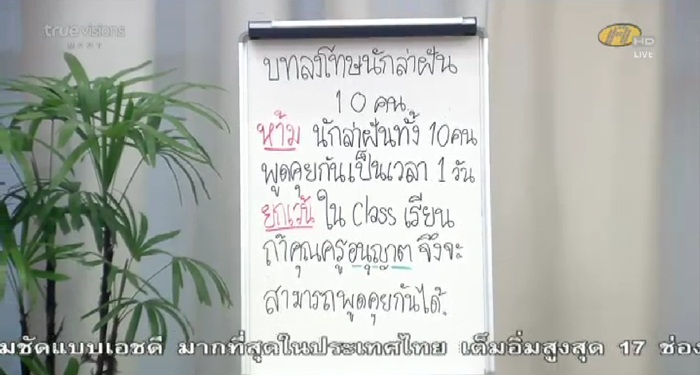 truevisions
HD
LIVE
บทลงโทษนักล่าฝัน
10 คน
ห้าม นักล่าฝันทั้ง 10คน
พูดคุยกันเป็นเวลา 1 วัน
ยกเว้น ใน Class เรียน
ถ้าคุณครูอนุญาต จึงจะ
สามารถพูดคุยกันได้.
มชัดแบบเอชดี มากที่สุดในประเทศไทย เต็มอิ่มสูงสุด 17 ช่อง